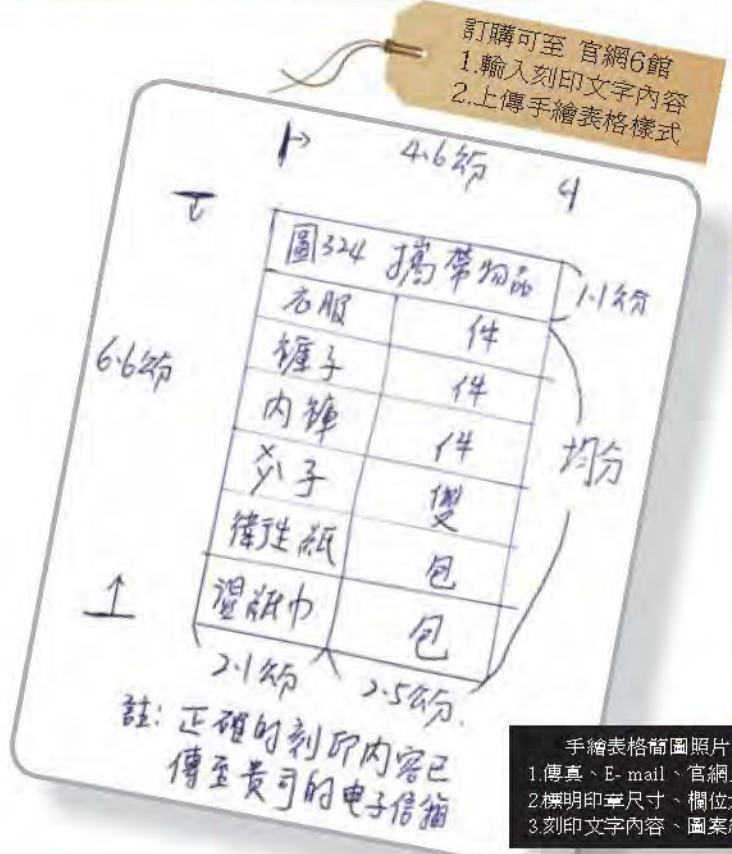 訂購可至 官網6館
1.輸入刻印文字內容
2.上傳手繪表格樣式
4.6公分
圖324 攜帶物品
1.1公分
衣服 件
褲子 件
6.6公分
內褲 件
均分
子 雙
衛生紙 包
濕紙巾 包
2.1公分 2.5公分.
註: 正確的刻印內容已
傳至貴司的电子信箱
手繪表格簡圖照片
1.傳真、E-mail、官網
2.標明印章尺寸、欄位
3.刻印文字內容、圖案